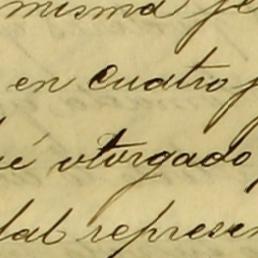 misma fe
en cuatro f
ué otorgado
tal represen